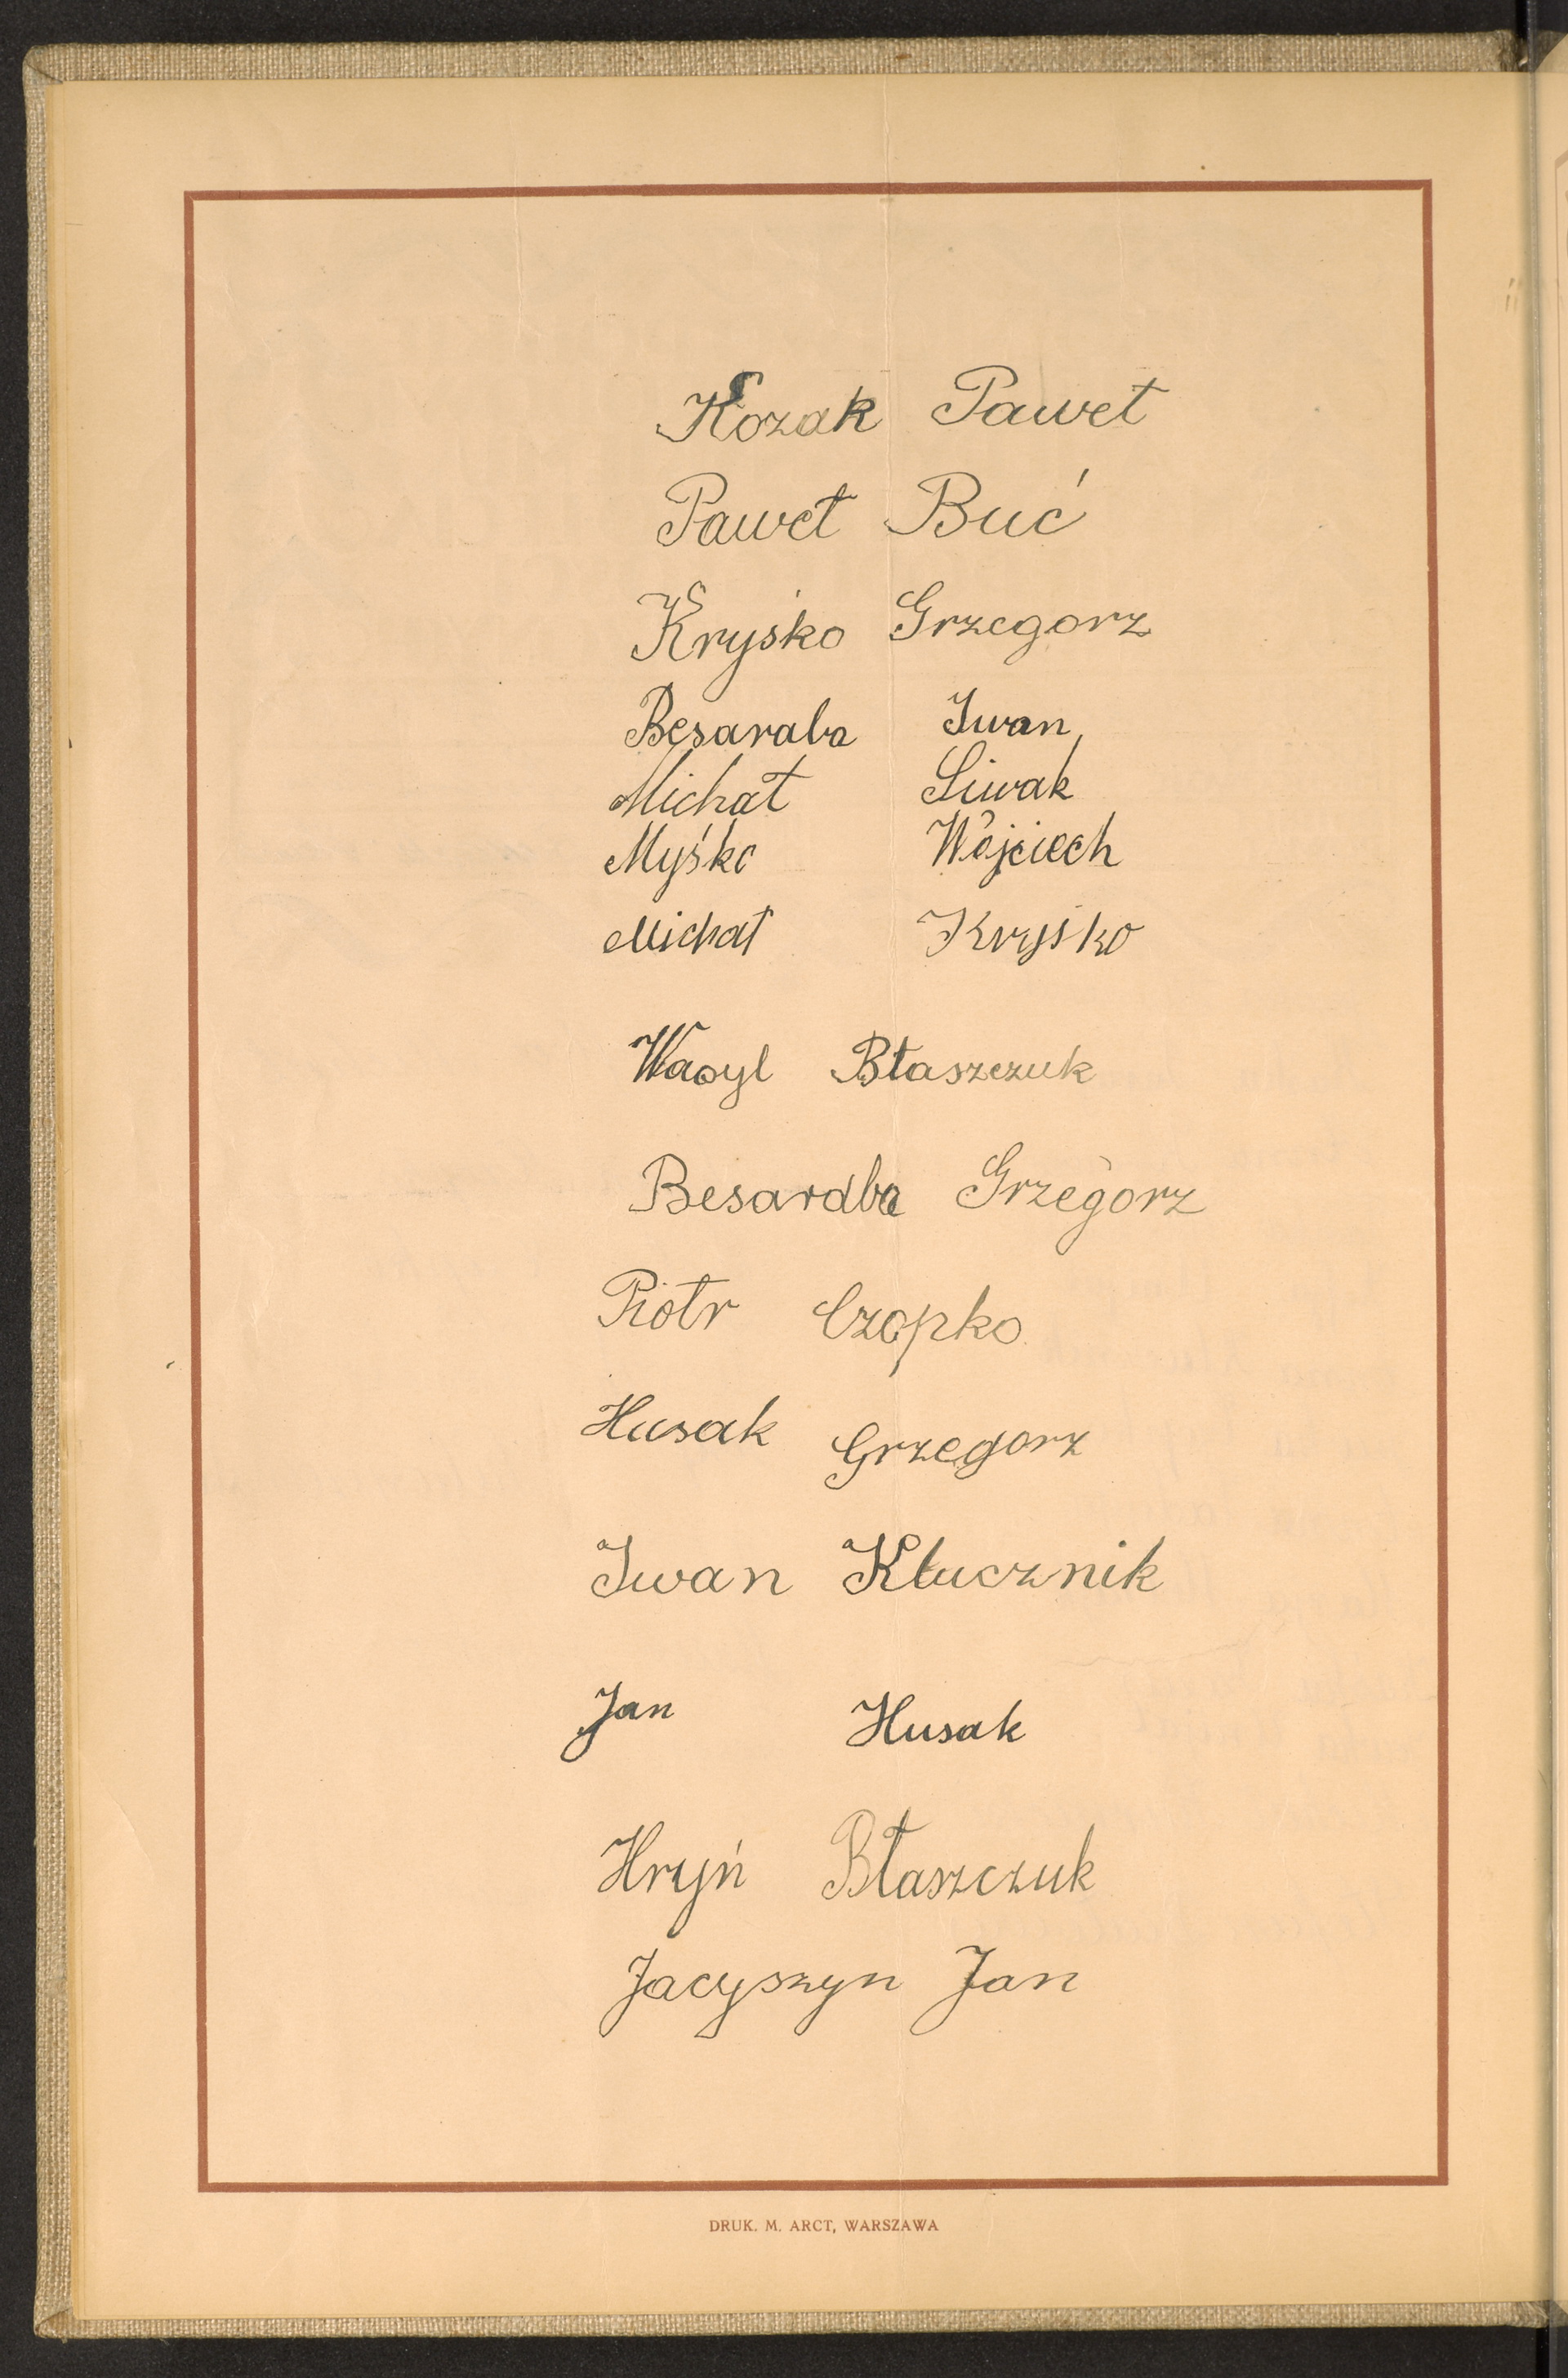 Kozak Paweł
Paweł Buć
Kryśko Grzegorz
Besaraba Iwan
Michał Siwak
Myśko Wójciech
Michał Kryśko
Wasyl Błaszczuk
Besaraba Grzegorz
Piotr Czopko
Husak Grzegorz
Iwan Kłucznik
Jan Husak
Hryń Błaszczuk
Jacyszyn Jan
DRUK. M. ARCT, WARSZAWA